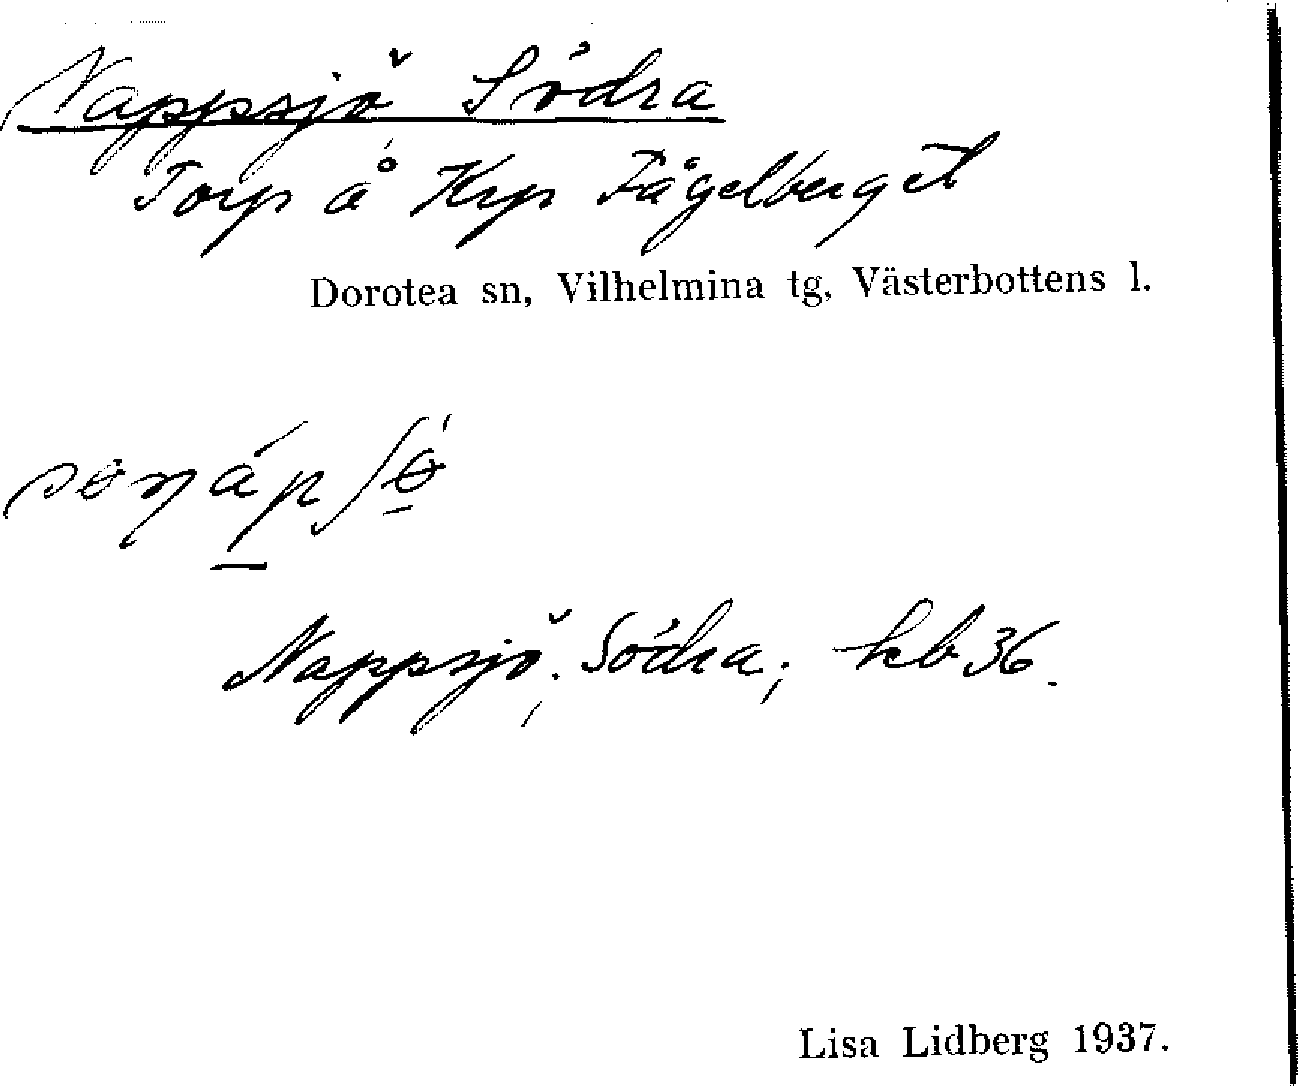 Nappsjö Södra
Torp å Krp Fågelberget
Dorotea sn, Vilhelmina tg, Västerbottens l.
Nappsjö, Södra; kb 36.
Lisa Lidberg 1937.